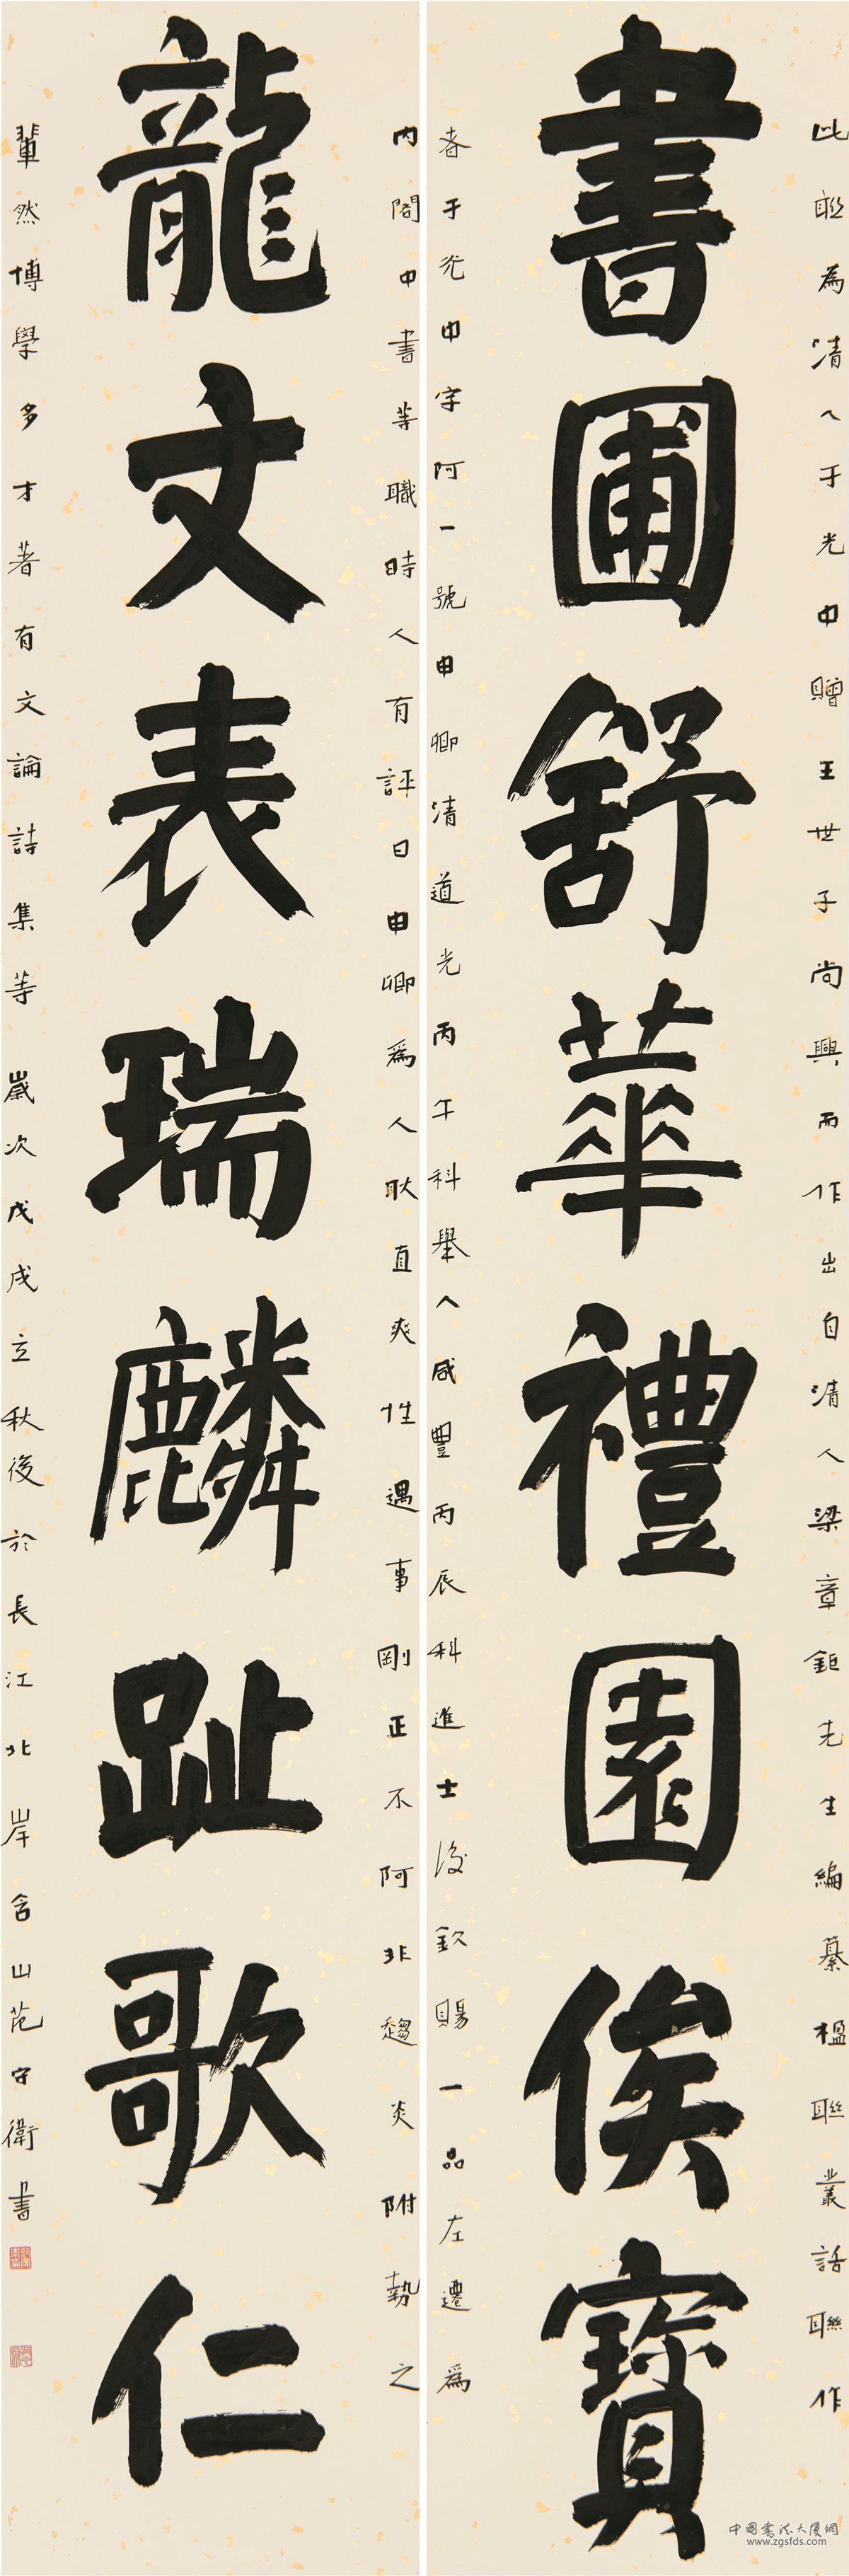 此聯為清人于光中贈王世子尚興而作出自清人梁章鉅先生編纂楹聯叢話聯作
書圃舒華禮園俟寶
者于光中字阿一號申卿清道光丙午科舉人咸豐丙辰科進士後欽賜一品左遷為
內閣中書等職時人有評曰申卿為人耿直爽性遇事剛正不阿非趨炎附勢之
龍文表瑞麟趾歌仁
輩然博學多才著有文論詩集等 歲次戊戌立秋後於長江北岸含山范守衛書
中國書法大廈網
www.zgsfds.com